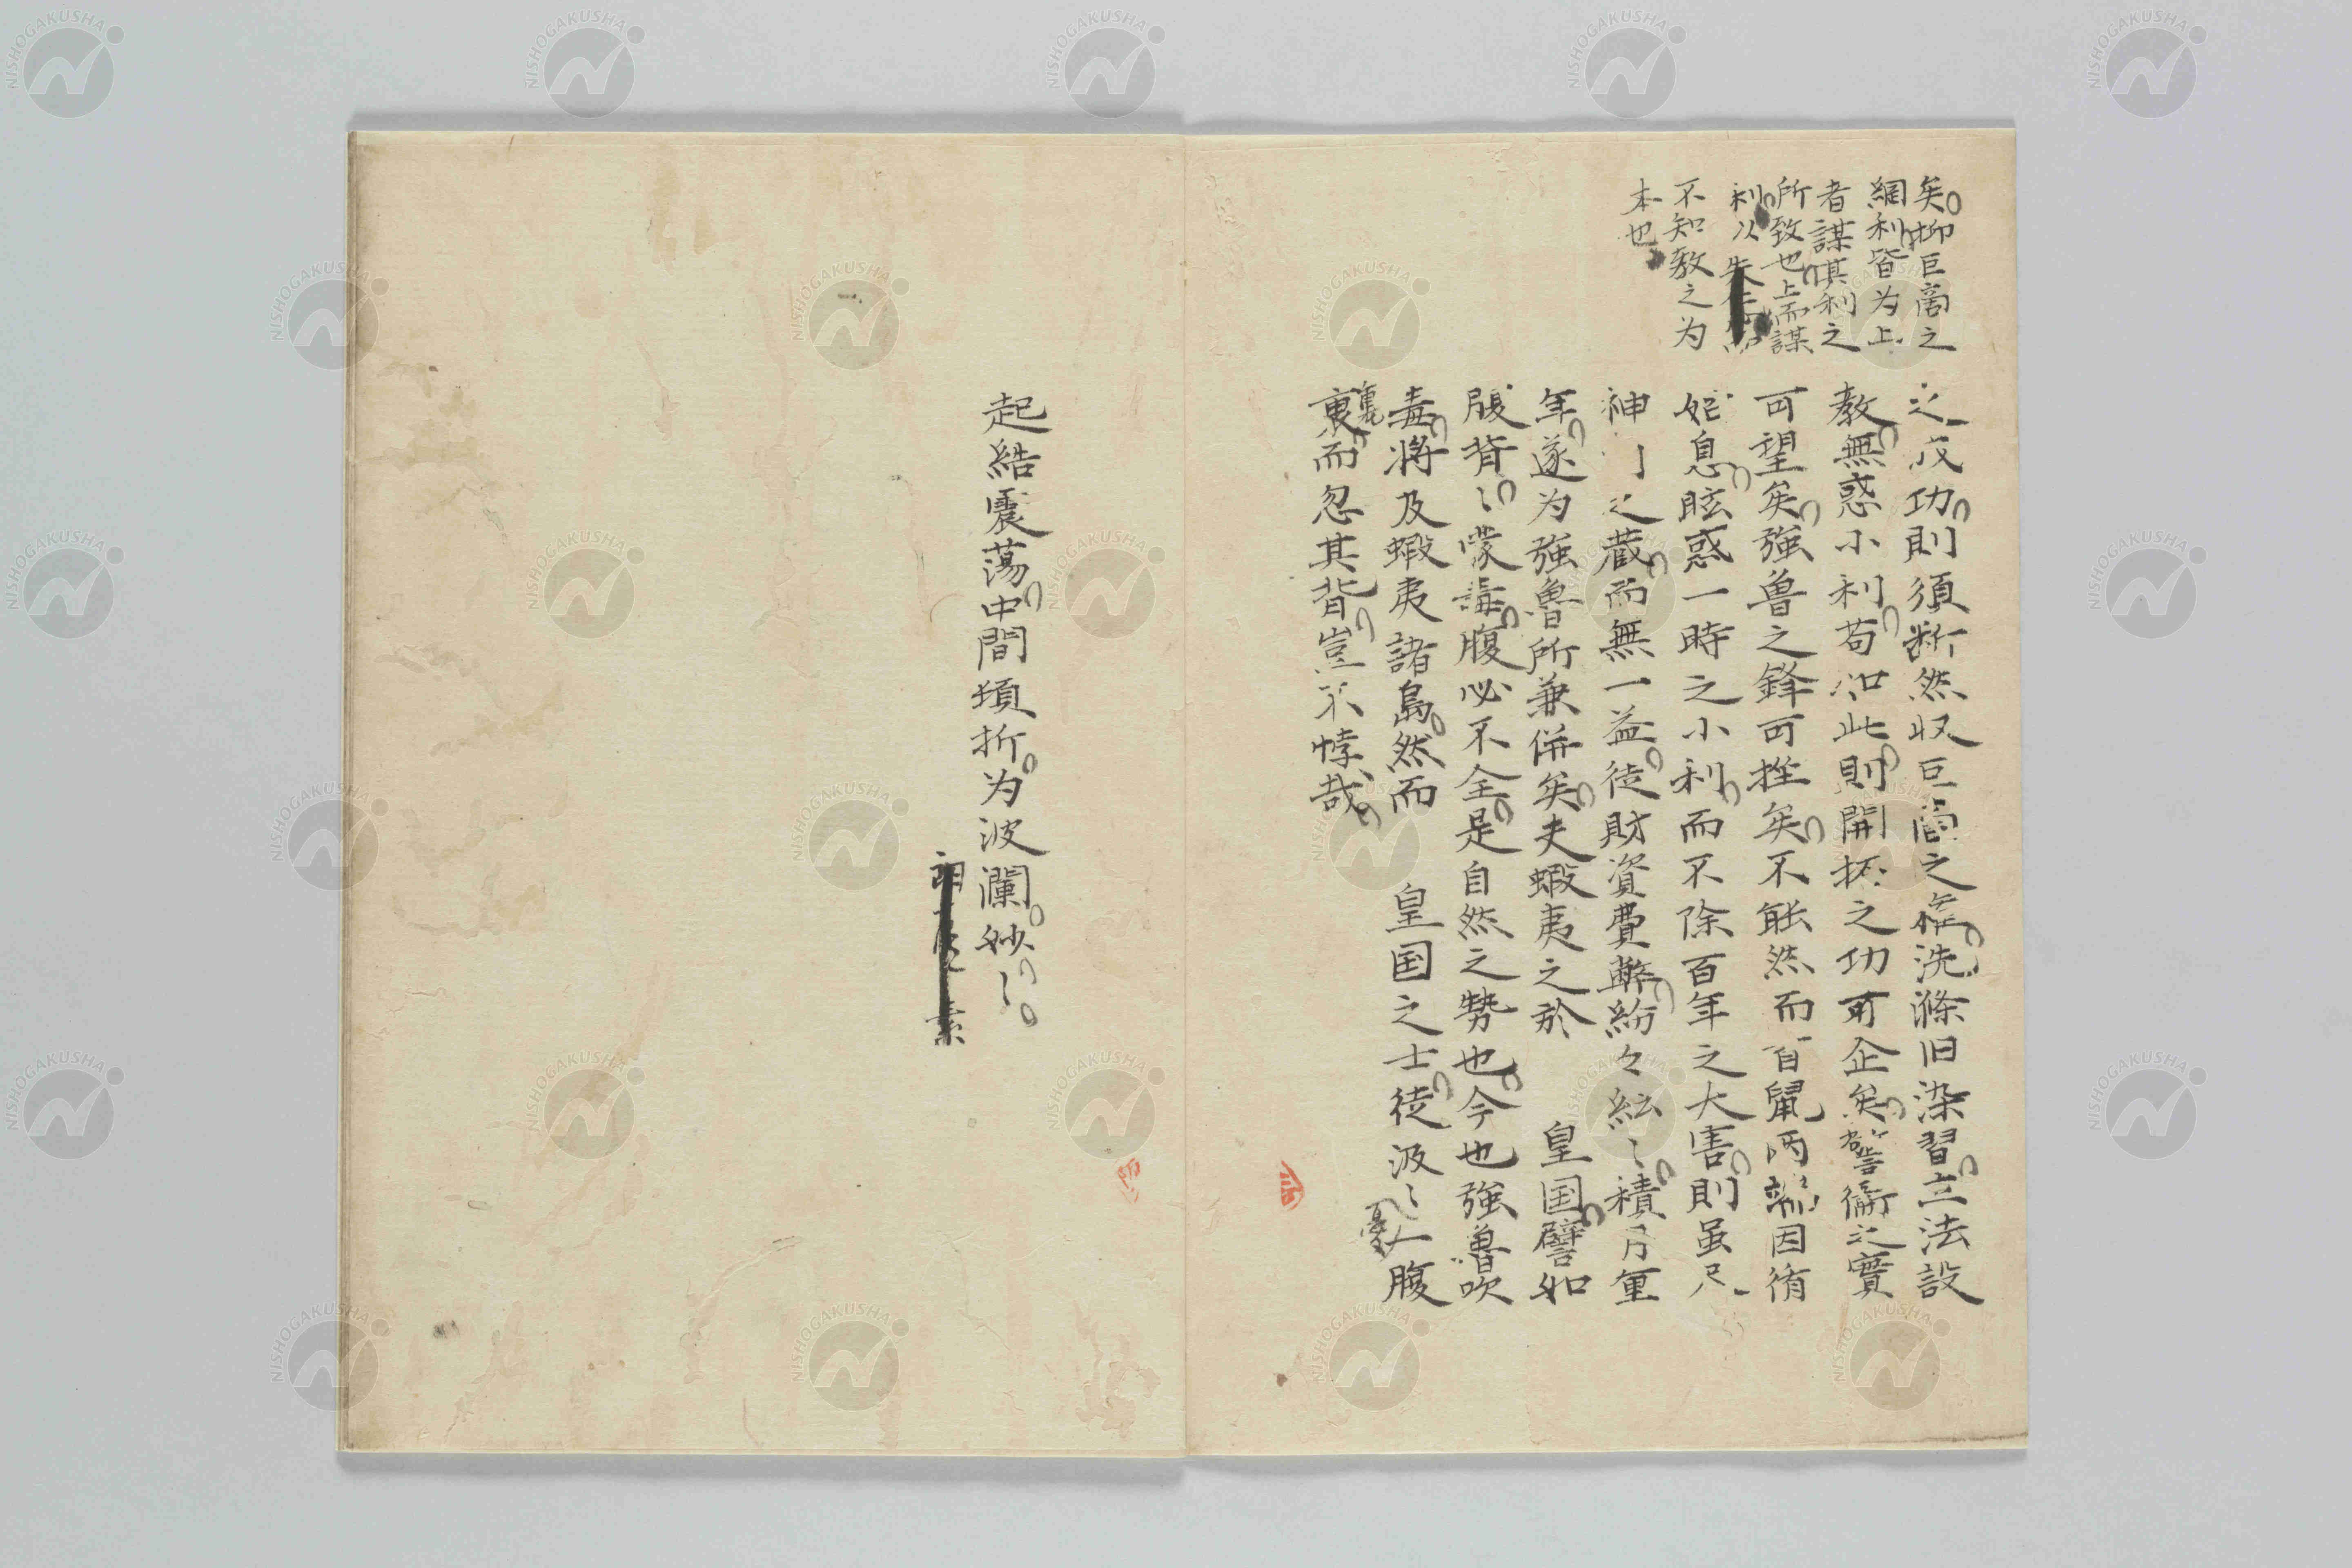 矣抑巨啇之
網利皆为上
者謀其利之
所致也上而謀
利以
不知教之为
本也
之成功則須断然収巨啇之権洗滌旧染習立法設
教無惑小利苟如此則開拓之功可企矣警衞之實
可望矣強魯之鋒可挫矣不能然而首鼠両端因循
姑息眩惑一時之小利而不除百年之大害則虽尽
神 之蔵而無一益徒財資費弊紛々紜〻積月重
年遂为強魯所兼併矣夫蝦夷之於 皇国譬如
腹背〻蒙毒腹必不全是自然之勢也今也強魯吹
毒将及蝦夷諸島然而 皇国之士徒汲〻憂腹
裏而忽其背豈不悖哉
裏
起結震蕩中間頓折为波瀾妙〻
NISHOGAKUSHA